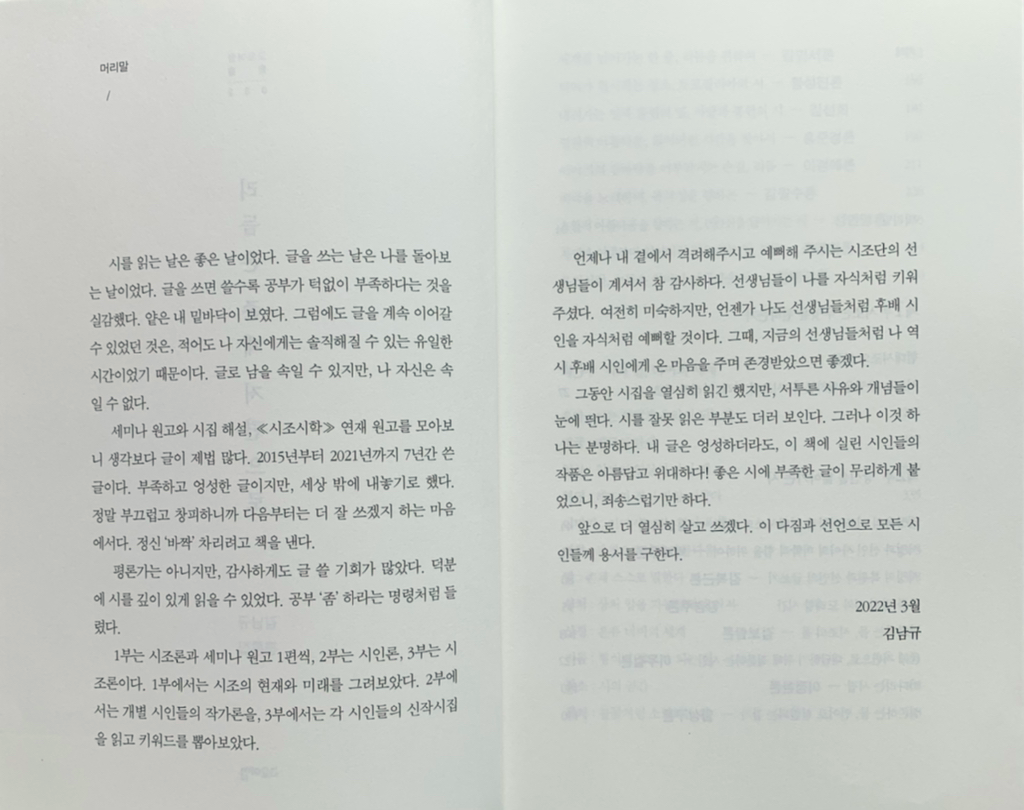 머리말
/
시를 읽는 날은 좋은 날이었다. 글을 쓰는 날은 나를 돌아보
는 날이었다. 글을 쓰면 쓸수록 공부가 턱없이 부족하다는 것을
실감했다. 얕은 내 밑바닥이 보였다. 그럼에도 글을 계속 이어갈
수 있었던 것은, 적어도 나 자신에게는 솔직해질 수 있는 유일한
시간이었기 때문이다. 글로 남을 속일 수 있지만, 나 자신은 속
일 수 없다.
세미나 원고와 시집 해설, ≪시조시학≫ 연재 원고를 모아보
니 생각보다 글이 제법 많다. 2015년부터 2021년까지 7년간 쓴
글이다. 부족하고 엉성한 글이지만, 세상 밖에 내놓기로 했다.
정말 부끄럽고 창피하니까 다음부터는 더 잘 쓰겠지 하는 마음
에서다. 정신 ‘바짝’ 차리려고 책을 낸다.
평론가는 아니지만, 감사하게도 글 쓸 기회가 많았다. 덕분
에 시를 깊이 있게 읽을 수 있었다. 공부 ‘좀’ 하라는 명령처럼 들
렸다.
1부는 시조론과 세미나 원고 1편씩, 2부는 시인론, 3부는 시
조론이다. 1부에서는 시조의 현재와 미래를 그려보았다. 2부에
서는 개별 시인들의 작가론을, 3부에서는 각 시인들의 신작시집
을 읽고 키워드를 뽑아보았다.
언제나 내 곁에서 격려해주시고 예뻐해 주시는 시조단의 선
생님들이 계셔서 참 감사하다. 선생님들이 나를 자식처럼 키워
주셨다. 여전히 미숙하지만, 언젠가 나도 선생님들처럼 후배 시
인을 자식처럼 예뻐할 것이다. 그때, 지금의 선생님들처럼 나 역
시 후배 시인에게 온 마음을 주며 존경받았으면 좋겠다.
그동안 시집을 열심히 읽긴 했지만, 서투른 사유와 개념들이
눈에 띈다. 시를 잘못 읽은 부분도 더러 보인다. 그러나 이것 하
나는 분명하다. 내 글은 엉성하더라도, 이 책에 실린 시인들의
작품은 아름답고 위대하다! 좋은 시에 부족한 글이 무리하게 붙
었으니, 죄송스럽기만 하다.
앞으로 더 열심히 살고 쓰겠다. 이 다짐과 선언으로 모든 시
인들께 용서를 구한다.
2022년 3월
김남규